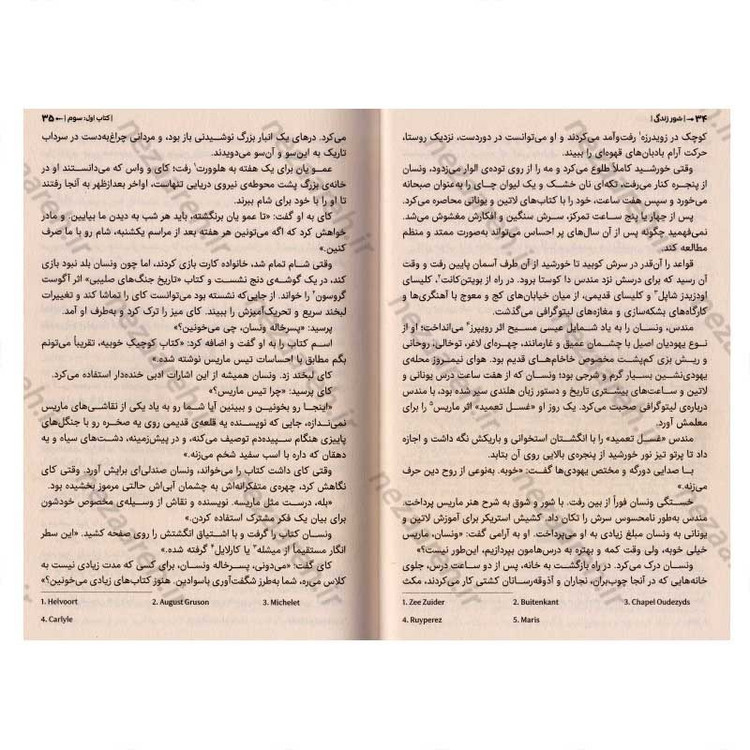 ۳۴ → | شور زندگی |
کوچک در زویدرزه¹ رفت‌وآمد می‌کردند و او می‌توانست در دوردست، نزدیک روستا،
حرکت آرام بادبان‌های قهوه‌ای را ببیند.
وقتی خورشید کاملاً طلوع می‌کرد و مه را از روی توده‌ی الوار می‌زدود، ونسان
از پنجره کنار می‌رفت، تکه‌ای نان خشک و یک لیوان چای را به‌عنوان صبحانه
می‌خورد و سپس هفت ساعت، خود را با کتاب‌های لاتین و یونانی محاصره می‌کرد.
پس از چهار یا پنج ساعت تمرکز، سرش سنگین و افکارش مغشوش می‌شد.
نمی‌فهمید چگونه پس از آن سال‌های پر احساس می‌تواند به‌صورت ممتد و منظم
مطالعه کند.
قواعد را آن‌قدر در سرش کوبید تا خورشید از آن طرف آسمان پایین رفت و وقت
آن رسید که برای درسش نزد مندس دا کوستا برود. در راه از بویتن‌کانت²، کلیسای
اودزیدز شاپل³ و کلیسای قدیمی، از میان خیابان‌های کج و معوج با آهنگری‌ها و
کارگاه‌های بشکه‌سازی و مغازه‌های لیتوگرافی می‌گذشت.
مندس، ونسان را به یاد شمایل عیسی مسیح اثر روپیرز⁴ می‌انداخت؛ او از
نوع یهودیان اصیل با چشمان عمیق و غارمانند، چهره‌ای لاغر، توخالی، روحانی
و ریش بزی کم‌پشت مخصوص خاخام‌های قدیم بود. هوای نیمروز محله‌ی
یهودی‌نشین بسیار گرم و شرجی بود؛ ونسان که از هفت ساعت درس یونانی و
لاتین و ساعت‌های بیشتری تاریخ و دستور زبان هلندی سیر شده بود، با مندس
درباره‌ی لیتوگرافی صحبت می‌کرد. یک روز او «غسل تعمید» اثر ماریس⁵ را برای
معلمش آورد.
مندس «غسل تعمید» را با انگشتان استخوانی و باریکش نگه داشت و اجازه
داد تا پرتو تیز نور خورشید از پنجره‌ی بالایی روی آن بتابد.
با صدایی دورگه و مختص یهودی‌ها گفت: «خوبه. به‌نوعی از روح دین حرف
می‌زنه.»
خستگی ونسان فوراً از بین رفت. با شور و شوق به شرح هنر ماریس پرداخت.
مندس به‌طور نامحسوس سرش را تکان داد. کشیش استریکر برای آموزش لاتین و
یونانی به ونسان مبلغ زیادی به او می‌پرداخت. او به آرامی گفت: «ونسان، ماریس
خیلی خوبه، ولی وقت کمه و بهتره به درس‌هامون بپردازیم، این‌طور نیست؟»
ونسان درک می‌کرد. در راه بازگشت به خانه، پس از دو ساعت درس، جلوی
خانه‌هایی که در آنجا چوب‌بران، نجاران و آذوقه‌رسانان کشتی کار می‌کردند، مکث
1. Zee Zuider 2. Buitenkant 3. Chapel Oudezyds
4. Ruyperez 5. Maris
| کتاب اول: سوم | ← ۳۵
می‌کرد. درهای یک انبار بزرگ نوشیدنی باز بود، و مردانی چراغ‌به‌دست در سرداب
تاریک به این‌سو و آن‌سو می‌دویدند.
عمو یان برای یک هفته به هلوورت¹ رفت؛ کای و واس که می‌دانستند او در
خانه‌ی بزرگ پشت محوطه‌ی نیروی دریایی تنهاست، اواخر بعدازظهر به آنجا رفتند
تا او را با خود برای شام ببرند.
کای به او گفت: «تا عمو یان برنگشته، باید هر شب به دیدن ما بیایین. و مادر
خواهش کرد که اگه می‌تونین هر هفته بعد از مراسم یکشنبه، شام رو با ما صرف
کنین.»
وقتی شام تمام شد، خانواده کارت بازی کردند، اما چون ونسان بلد نبود بازی
کند، در یک گوشه‌ی دنج نشست و کتاب «تاریخ جنگ‌های صلیبی» اثر آگوست
گروسون² را خواند. از جایی‌که نشسته بود می‌توانست کای را تماشا کند و تغییرات
لبخند سریع و تحریک‌آمیزش را ببیند. کای میز را ترک کرد و به‌طرف او آمد.
پرسید: «پسرخاله ونسان، چی می‌خونین؟»
اسم کتاب را به او گفت و اضافه کرد: «کتاب کوچیک خوبیه، تقریباً می‌تونم
بگم مطابق با احساسات تیس ماریس نوشته شده.»
کای لبخند زد. ونسان همیشه از این اشارات ادبی خنده‌دار استفاده می‌کرد.
کای پرسید: «چرا تیس ماریس؟»
«اینجا رو بخونین و ببینین آیا شما رو به یاد یکی از نقاشی‌های ماریس
نمی‌ندازه، جایی که نویسنده یه قلعه‌ی قدیمی روی یه صخره رو با جنگل‌های
پاییزی هنگام سپیده‌دم توصیف می‌کنه، و در پیش‌زمینه، دشت‌های سیاه و یه
دهقان که داره با اسب سفید شخم می‌زنه.»
وقتی کای داشت کتاب را می‌خواند، ونسان صندلی‌ای برایش آورد. وقتی کای
نگاهش کرد، چهره‌ی متفکرانه‌اش به چشمان آبی‌اش حالتی مرموز بخشیده بود.
«بله، درست مثل ماریسه. نویسنده و نقاش از وسیله‌ی مخصوص خودشون
برای بیان یک فکر مشترک استفاده کردن.»
ونسان کتاب را گرفت و با اشتیاق انگشتش را روی صفحه کشید. «این سطر
انگار مستقیماً از میشله³ یا کارلایل⁴ گرفته شده.»
کای گفت: «می‌دونی، پسرخاله ونسان، برای کسی که مدت زیادی نیست به
کلاس می‌ره، شما به‌طرز شگفت‌آوری باسوادین. هنوز کتاب‌های زیادی می‌خونین؟»
1. Helvoort 2. August Gruson 3. Michelet
4. Carlyle
nezamareh.ir